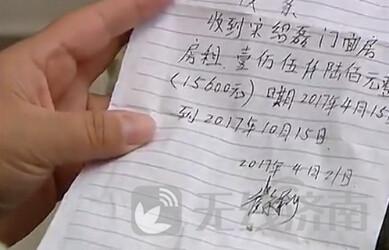 收到宋绍磊门面房
房租壹仟伍仟陆佰元整
(15600元)日期2017年4月15
到2017年10月15日
2017年4月21日
无线济南